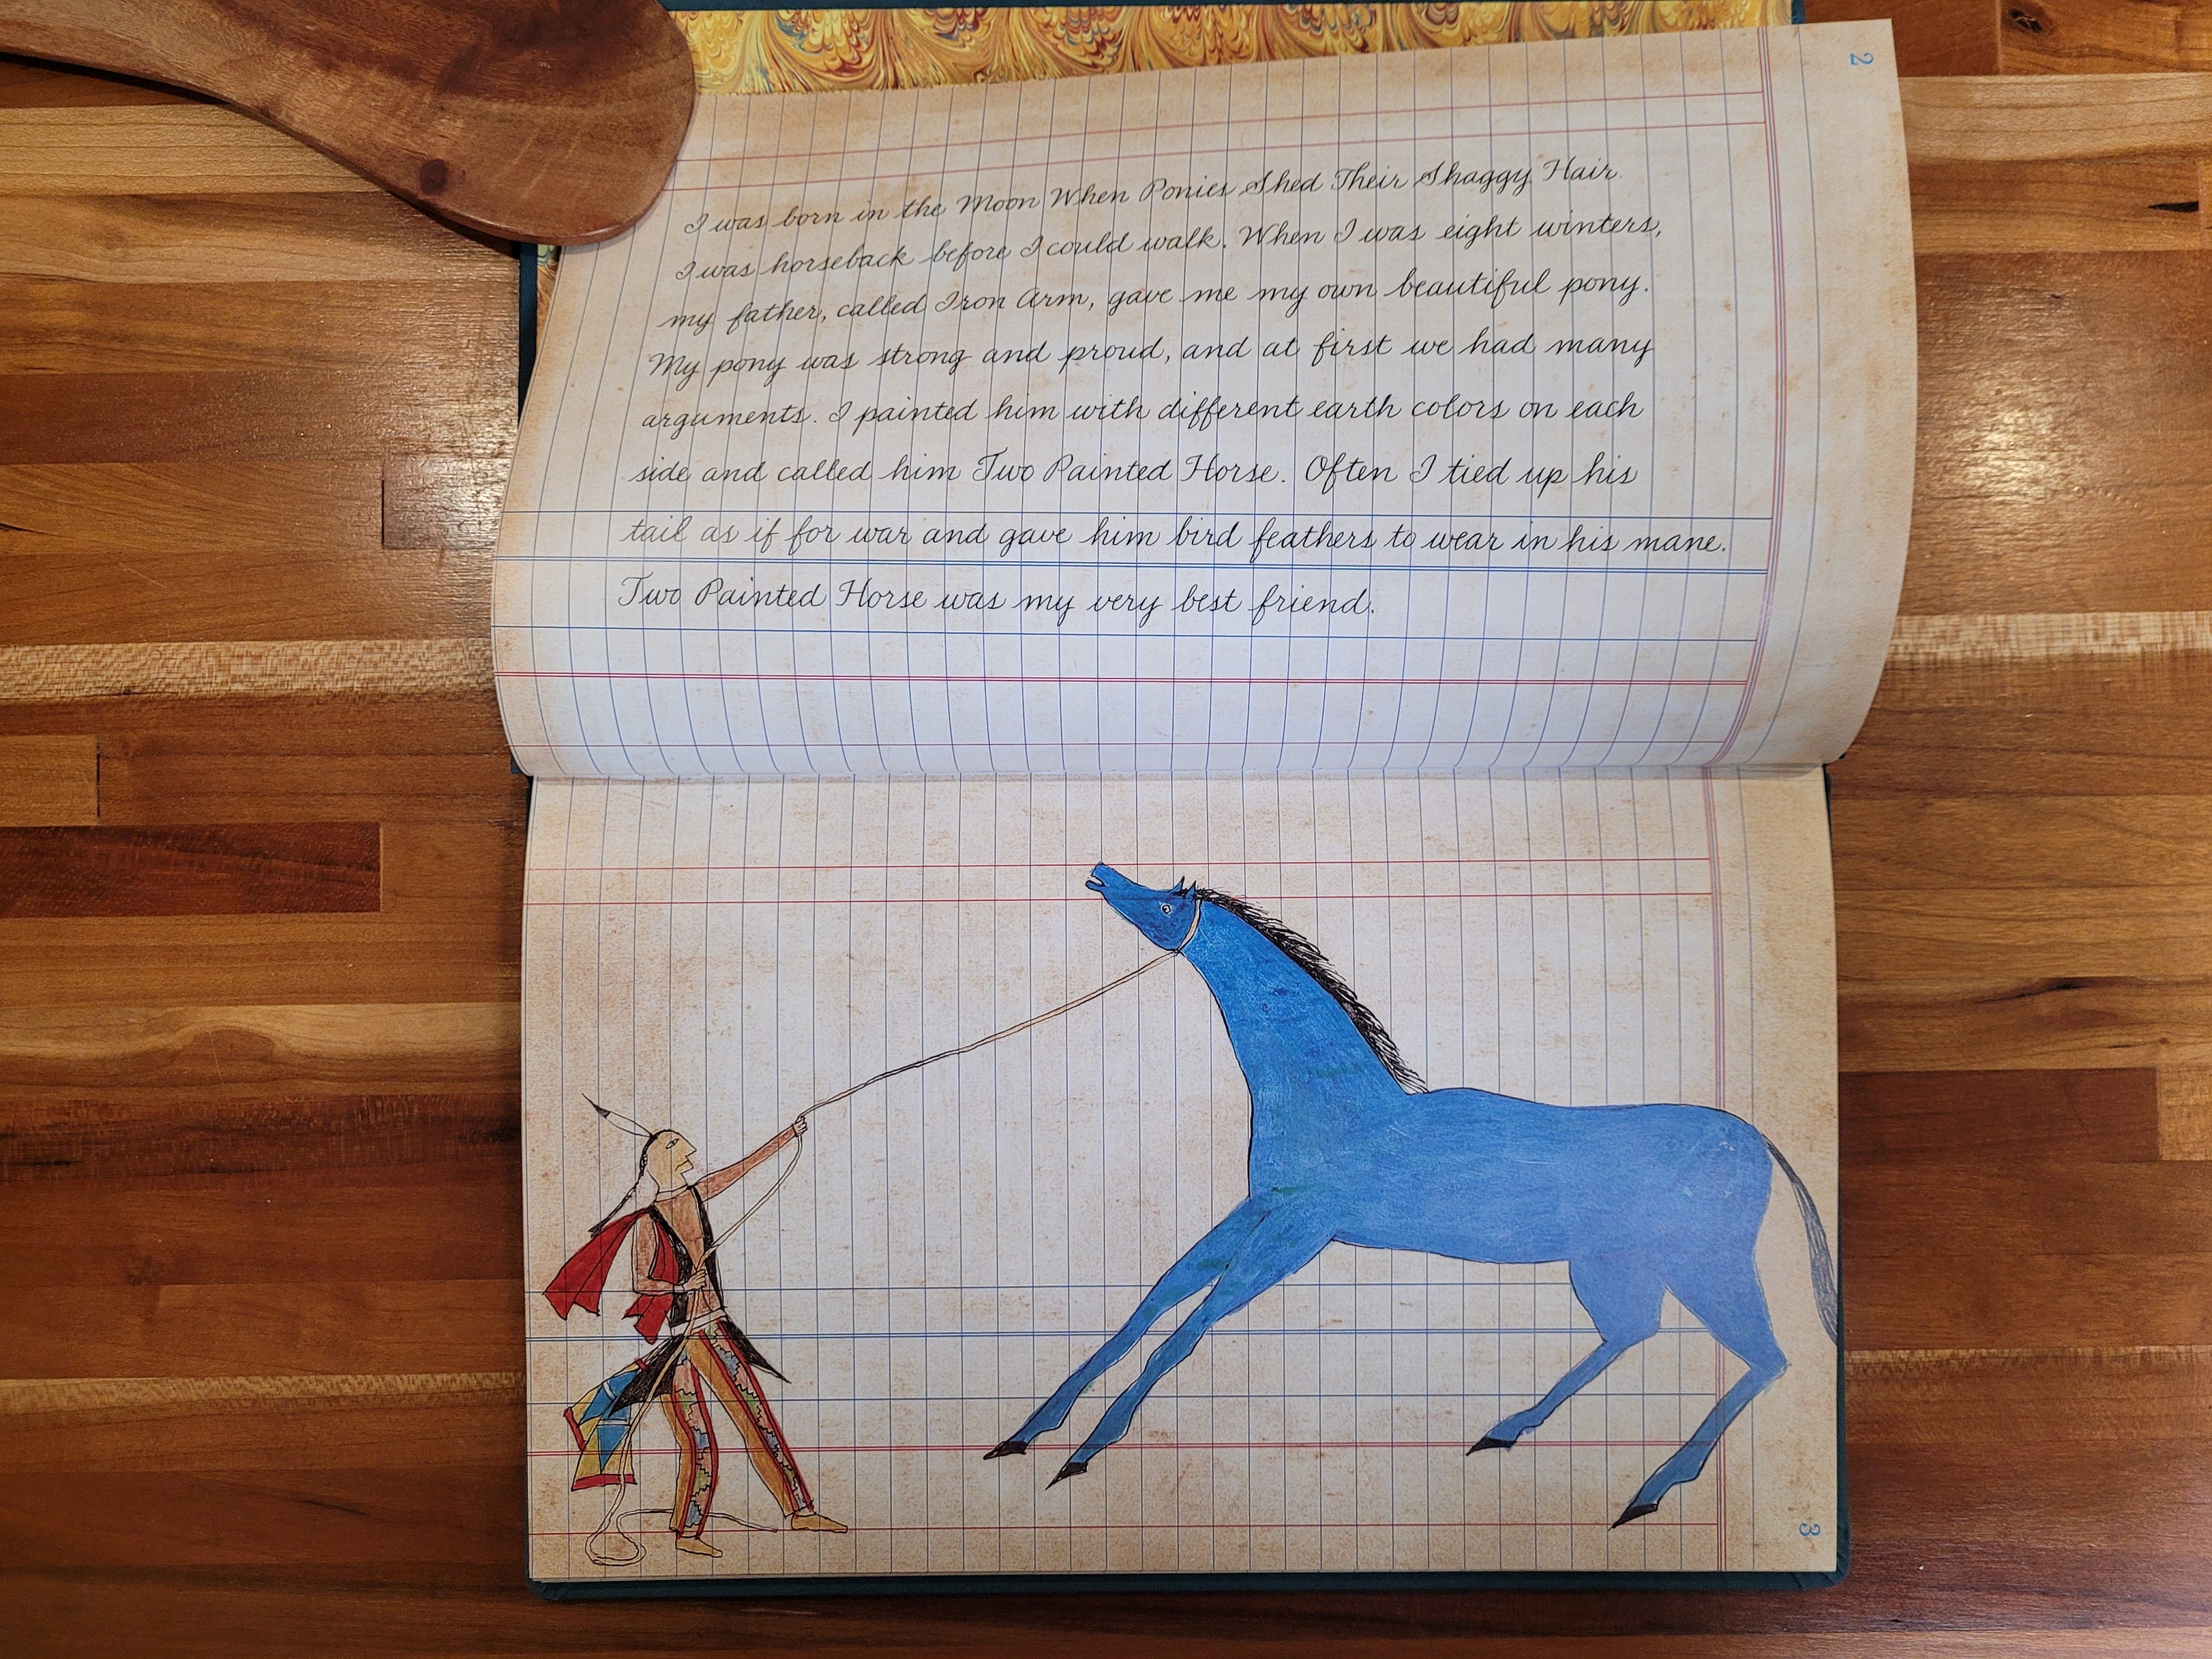 2
I was born in the Moon When Ponies Shed Their Shaggy Hair.
I was horseback before I could walk. When I was eight winters,
my father, called Iron Arm, gave me my own beautiful pony.
My pony was strong and proud, and at first we had many
arguments. I painted him with different earth colors on each
side and called him Two Painted Horse. Often I tied up his
tail as if for war and gave him bird feathers to wear in his mane.
Two Painted Horse was my very best friend.
3